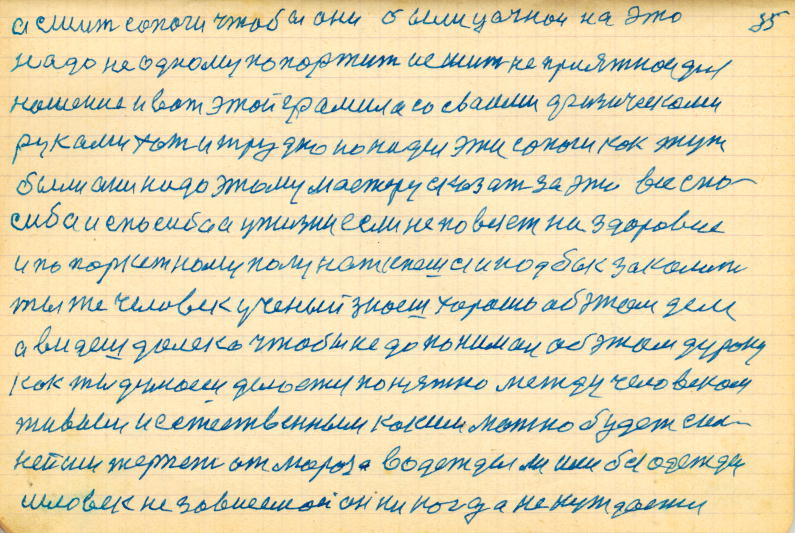 а сшит сопоги чтобы они были цачной на это 35
надо не одному попортит и шит не приятной для
ношение и вот этой грамила со своими физическоми
руками хот и трудно по на дел эти сопоги как тут
были они надо этому мастеру сказат за это все спо-
сиба и спосиба а у жизни если не повезет на здоровие
и по поркетному полу наткнеш си и под бык заколит
ты же человек ученый знаеш хорошо об этом деле
а видеш далеко чтобы не до понимал об этом дураку
как ты думоеш делоети понятно между человеком
живым и естественным каким можно будет сил-
нейши терпет от мороза в одежды ли или без одежди
человек не зовисемой он ни когда не нуждаети